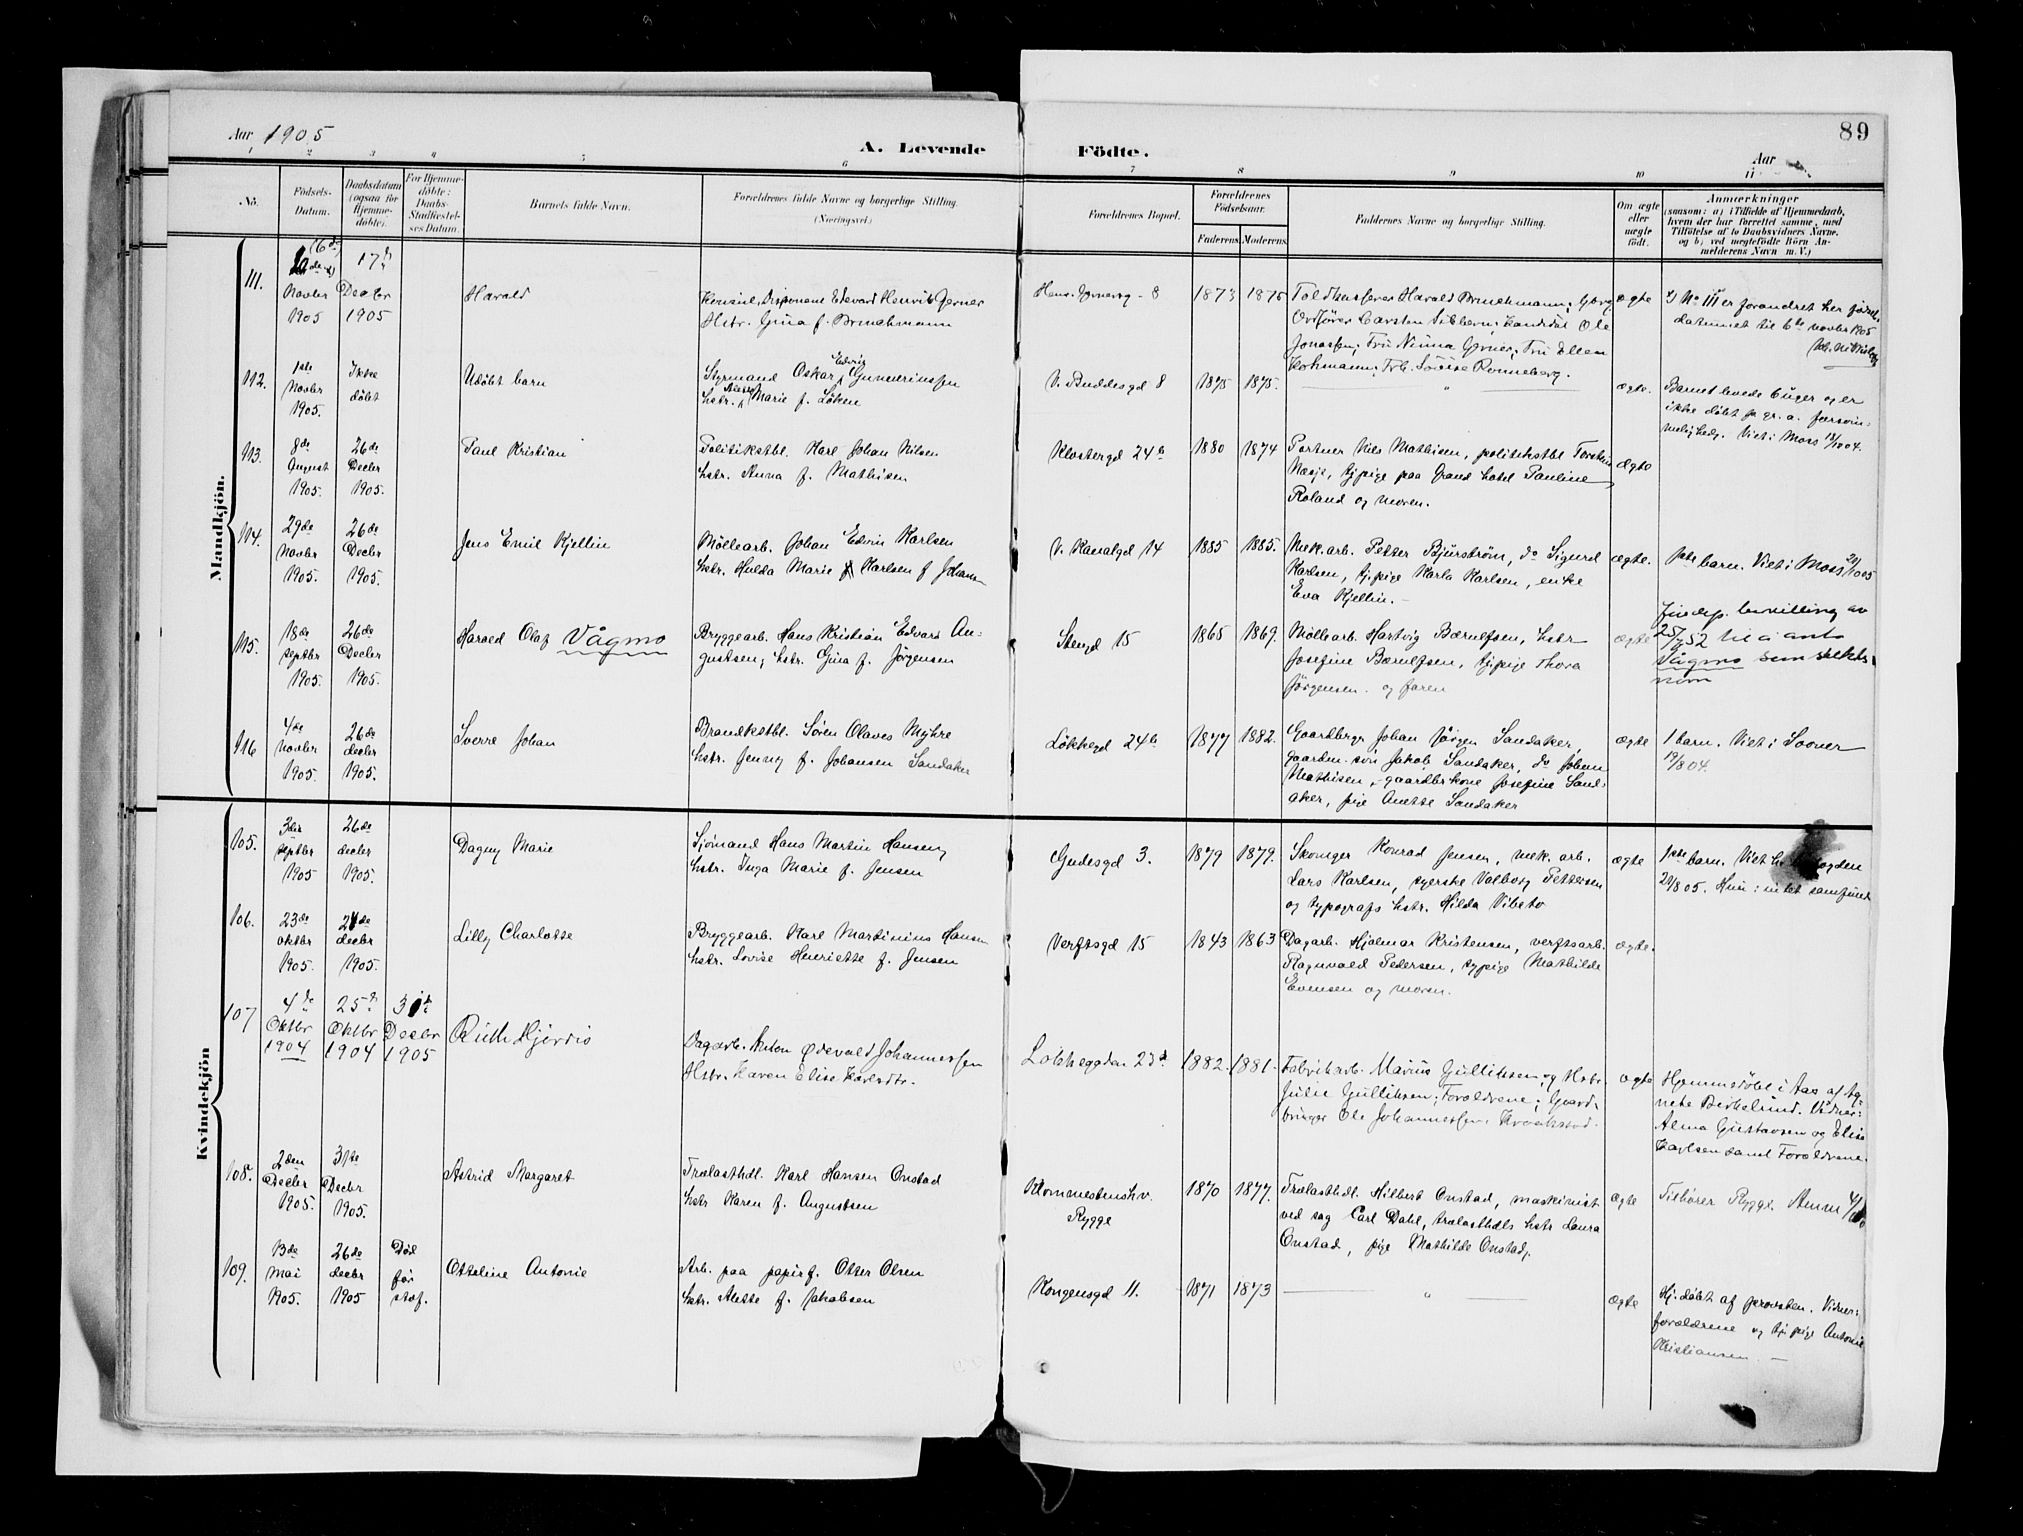 Aar 1905
A. Levende Födte.
89
Aar
1 2 3 4 5 6 7 8 9 10 11
No.
Födsels-Datum.
Daabsdatum (ogsaa for Hjemmedöbte).
For Hjemmedöbte: Daabs-Stadfæstelses Datum.
Barnets fulde Navn.
Forældrenes fulde Navne og borgerlige Stilling. (Næringsvei.)
Forældrenes Bopæl.
Forældrenes Födselsaar.
Faderens. Moderens.
Faddernes Navne og borgerlige Stilling.
Om ægte eller uægte födt.
Anmærkninger
(saasom: a) i Tilfælde af Hjemmedaab, hvem der har forrettet samme, med Tilföielse af to Daabsvidners Navne, og b) ved uægtefödte Börn Anmelderens Navn m. V.)
Mandkjön.
111.
(6de)
Novbr
1905
17de
Decbr
1905
Harald
Konsul, Disponent Edevard Henrik Gerner
Hstr. Gina f. Brinchmann
Hens. Gernersg. 8
1873
1875
Toldkasserer Harald Brinchmann;
Ordfører Carsten Sibbern; Kandidat Ole
Jonassen; Fru Ninna Gerner; Fru Ellen
Kohmann; Frk. Louise Ronneberg.
ægte
No 111 er forandret her fødsels-
datumet til 6te novbr 1905
112.
1ste
Novbr
1905.
Ikke
døbt
Udøbt barn
Styrmand Oskar Edvin Gundersen
hstr. Marie f. Løken
V. Buddesgd 8
1875
1875.
"
ægte.
Barnet levede 6 uger og er
ikke døbt p. gr. a. forsøm-
melighed. Viet i Moss 18/10 04.
113.
8de
August
1905.
26de
Decbr
1905.
Paul Kristian
Politikstbl. Karl Johan Nilsen
hstr. Anna f. Mathisen
Klostergd 24b
1880
1874
Portner Nils Mathisen, politikstbl Torstein
Næsje, tjpige paa Grand hotel Pauline
Roland og moren.
ægte
114.
29de
Novbr
1905.
26de
Decbr
1905.
Jens Emil Kjellin
Møllearb. Johan Edvin Karlsen
hstr. Hulda Marie Karlsen f Johans
V. Kanalgd 14
1885
1885.
Mek. arb. Petter Bjurstrøm, do Sigurd
Karlsen, tjpige Karla Karlsen, enke
Eva Kjellin.
ægte.
1ste barn. Viet i Moss 29/10 05
115.
18de
septbr
1905.
26de
Decbr
1905.
Harald Olaf Vågmo
Bryggearb. Hans Kristian Edvard Au-
gustsen, hstr. Gina f. Jørgensen
Stengd 15
1865
1869.
Møllearb. Hartvig Bærulfsen, hstr
Josefine Bærulfsen, tjpige Thora
Jørgensen. og faren
ægte
Jusdep. bevilling av
25/7 52 til å anta
Vågmo som slekts-
navn
116
4de
Novbr
1905.
26de
decbr
1905.
Sverre Johan
Brandkstbl. Søren Olaves Myhre
hstr. Jenny f. Johansen Sandaker
Løkkegd 24b
1877
1882.
Gaardbrgr Johan Jørgen Sandaker,
gaardm. søn Jakob Sandaker, do Johan
Mathisen, gaardbrkone Josefine Sand-
aker, pige Anette Sandaker
ægte
1 barn. Viet i Soon
19/8 04.
Kvindekjön
105.
3die
septbr
1905
26de
decbr
1905.
Dagny Marie
Sjømand Hans Martin Hansen,
hstr. Inga Marie f. Jensen
Gudesgd 3.
1879
1879.
Skomger Konrad Jensen, mek. arb.
Lars Karlsen, syerske Valborg Pettersen
og typografs hstr. Hilda Vibeto
ægte
1ste barn. Viet h. ogden
21/8 05. Hun: intet samfund
106.
23de
oktbr
1905.
26de
decbr
1905.
Lilly Charlotte
Bryggearb. Karl Martinius Hansen
hstr. Lovise Henriette f. Jensen
Verftsgd 15
1843
1863
Dagarb. Hjalmar Kristensen, verftsarb.
Ragnvald Pedersen, tjpige Mathilde
Evensen og moren.
ægte.
107
4de
Oktbr
1904
25de
Oktbr
1904
31te
Decbr
1905
Ruth Hjørdis
Dagarb. Anton Edevald Johannessen
Hstr. Karen Elise Karlsdtr.
Løkkegaden 23d
1882.
1881.
Fabrikarb. Marius Gulliksen og Hstr
Julie Gulliksen; Forældrene; Gaard-
bruger Ole Johannessen, Kraakstad.
ægte
Hjemmedøbt i Aas af Ag-
nete Birkelund. Vidner:
Alma Gustavsen og Elise
Karlsen samt Forældrene.
108.
2den
Decbr
1905.
31te
Decbr
1905.
Astrid Margaret
Trælasthdl. Karl Hansen Onstad
hstr Karen f. Augustsen
Klommestenshv.
Rygge
1870
1877.
Trælasthdl. Hilbert Onstad, maskinist
ved sag Carl Dahl, trælasthdls hstr Laura
Onstad, pige Mathilde Onstad.
ægte
Tilhører Rygge.
109.
13de
Mai
1905.
26de
decbr
1905
Død
før
staf.
Otteline Antonie
Arb. paa papirf. Otter Olsen
hstr. Alette f. Jakobsen
Kongensgd 11.
1871
1873
"
ægte
Hj. døbt af provsten. Vidner:
forældrene og tj. pige Antonie
Kristiansen.